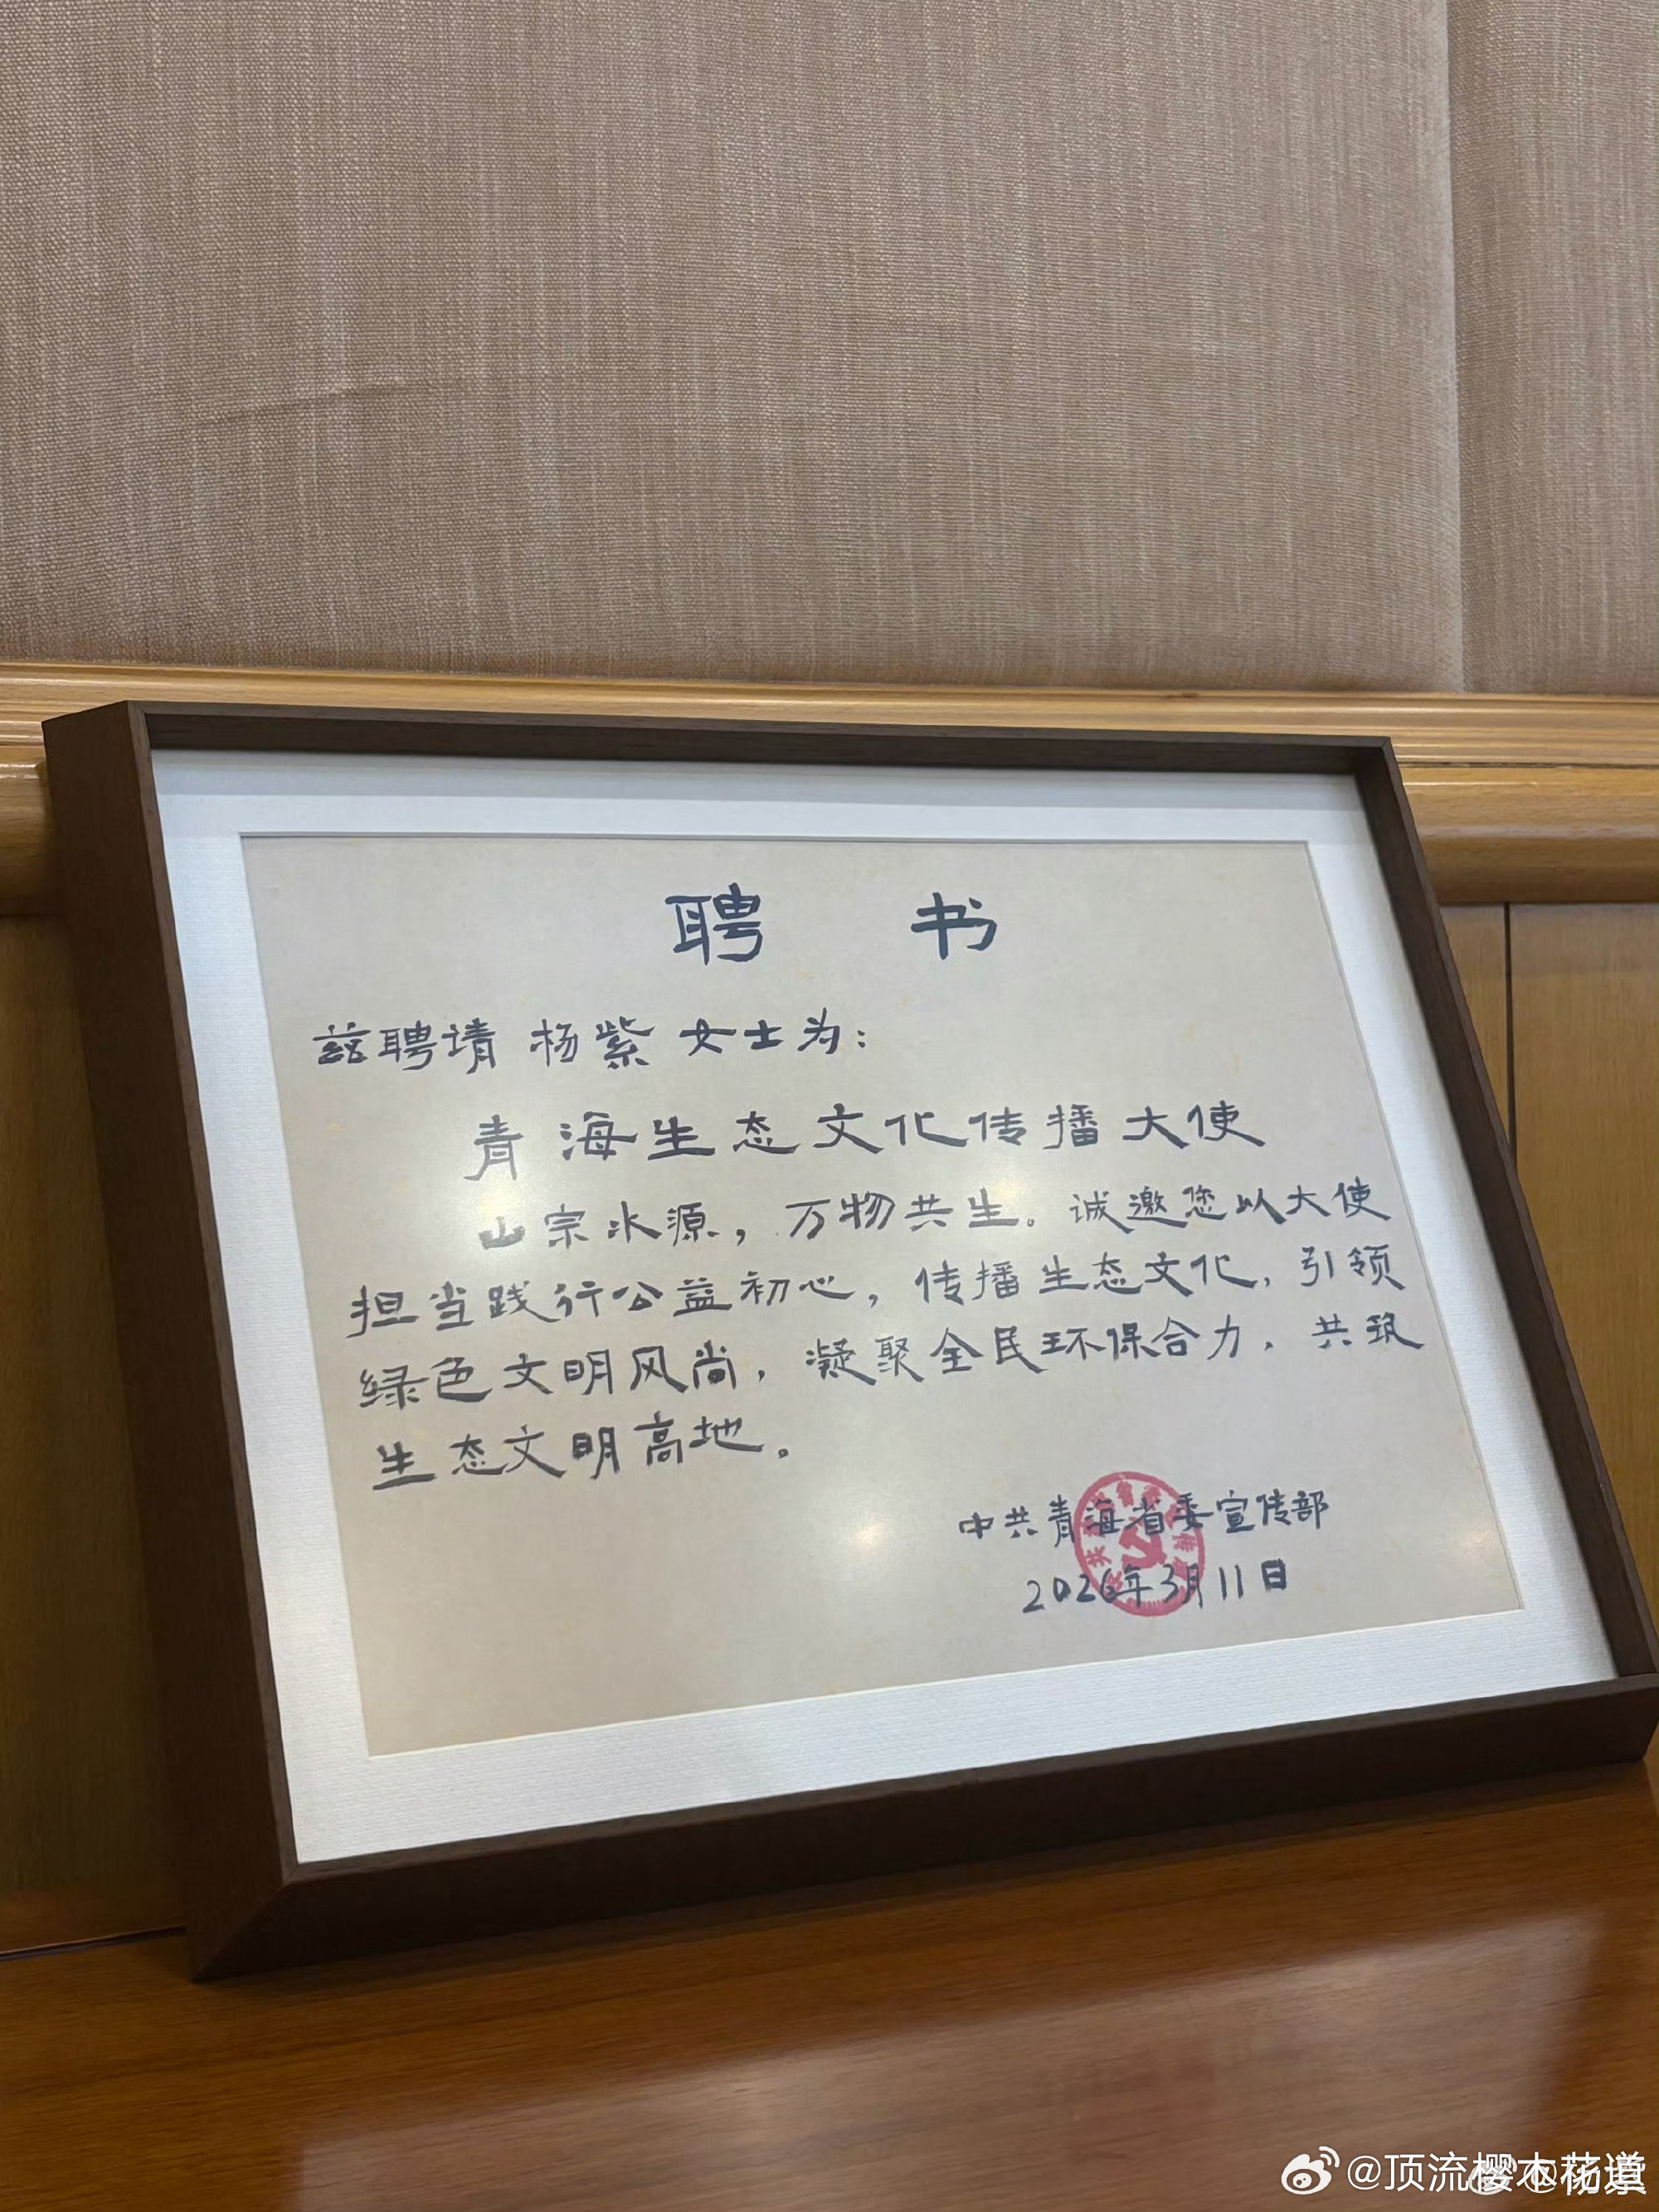 聘 书
兹聘请 杨紫 女士为：
青海生态文化传播大使
山宗水源，万物共生。诚邀您以大使
担当践行公益初心，传播生态文化，引领
绿色文明风尚，凝聚全民环保合力，共筑
生态文明高地。
中共青海省委宣传部
2026年3月11日
@顶流樱木花道